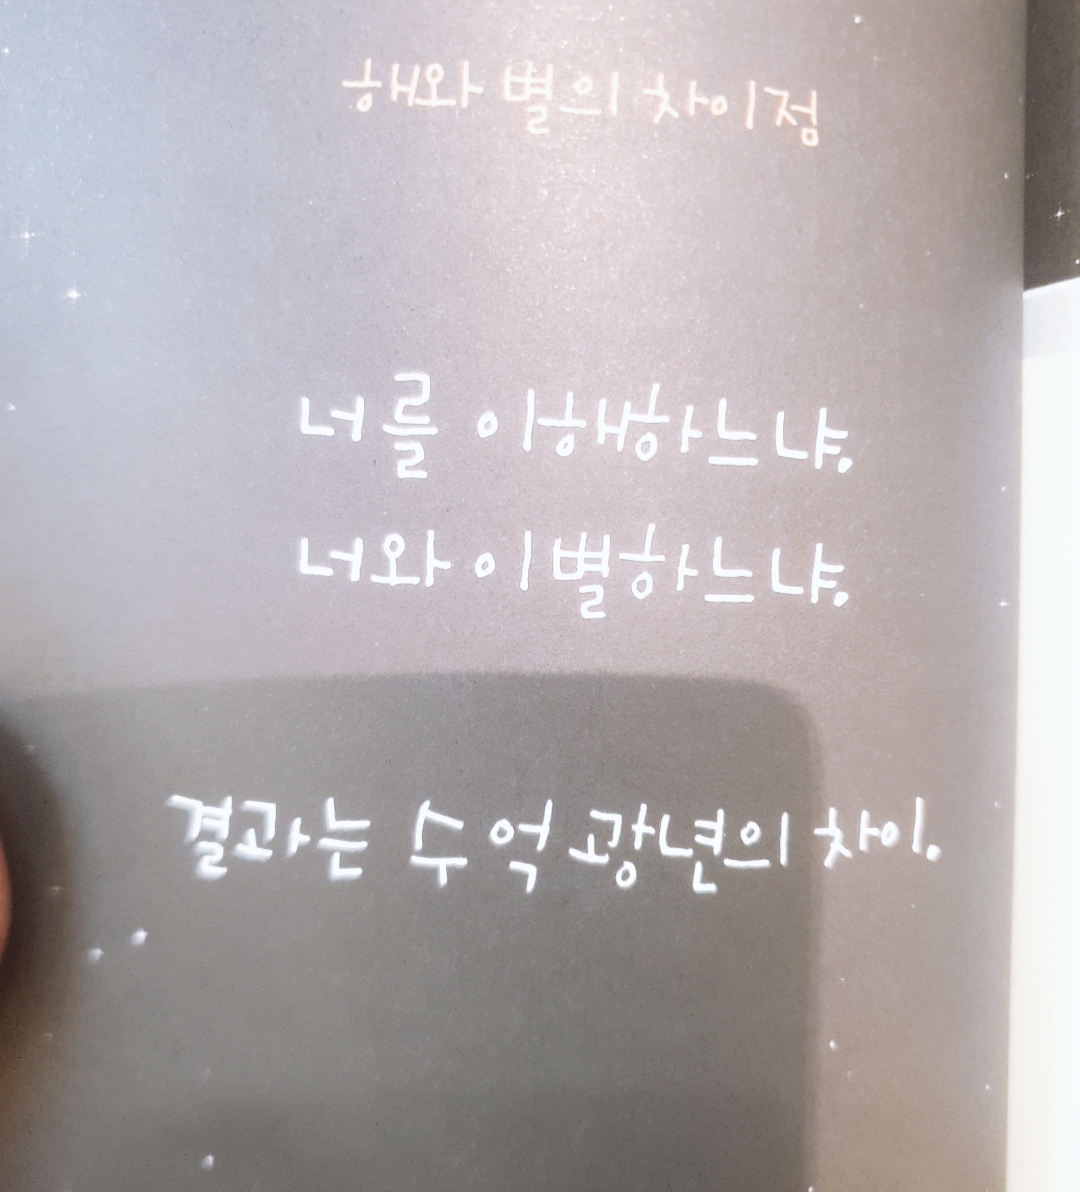 해와 별의 차이점
너를 이해하느냐.
너와 이별하느냐.
결과는 수억 광년의 차이.